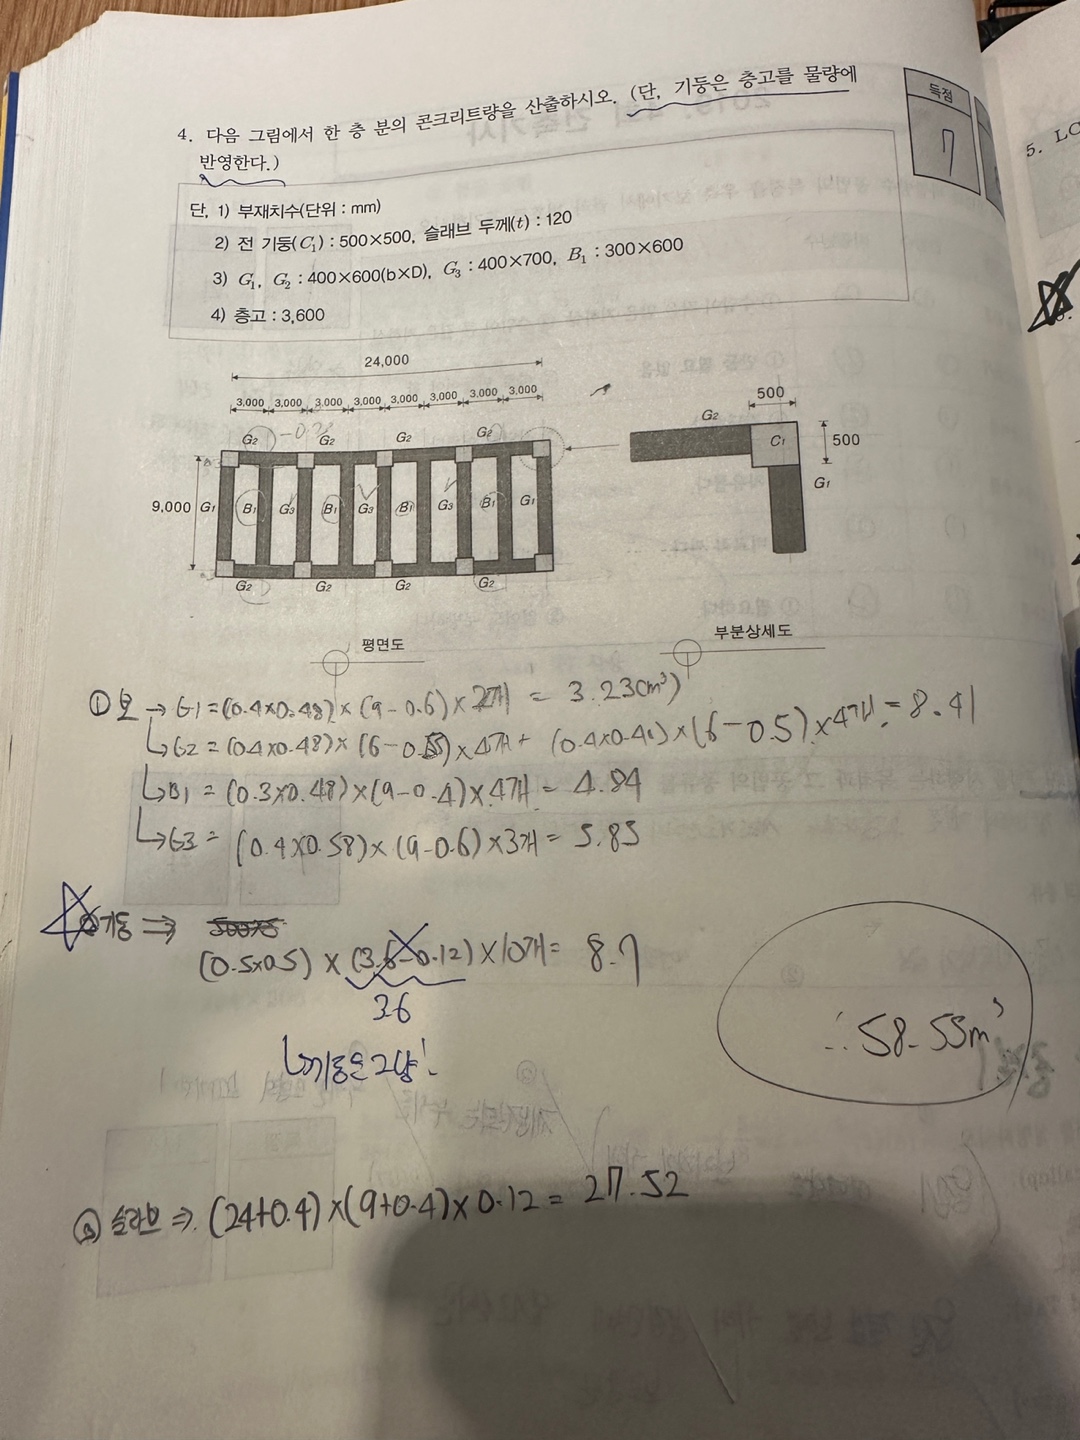 4. 다음 그림에서 한 층 분의 콘크리트량을 산출하시오. (단, 기둥은 층고를 물량에
반영한다.)
득점
7
5. LC
단, 1) 부재치수(단위 : mm)
2) 전 기둥(C₁) : 500×500, 슬래브 두께(t) : 120
3) G₁, G₂ : 400×600(b×D), G₃ : 400×700, B₁ : 300×600
4) 층고 : 3,600
24,000
3,000 3,000 3,000 3,000 3,000 3,000 3,000 3,000
G₂ G₂ G₂ G₂
9,000 G₁ B₁ G₃ B₁ G₃ B₁ G₃ B₁ G₁
G₂ G₂ G₂ G₂
평면도
500
G₂ C₁ 500
G₁
부분상세도
① 보 → G1 = (0.4×0.48)×(9-0.6)×2개 = 3.23(m³)
G2 = (0.4×0.48)× (6-0.5)×4개+ (0.4×0.48)×(6-0.5)×4개 = 8.41
B1 = (0.3×0.48)×(9-0.4)×4개 = 4.84
G3 = (0.4×0.58)×(9-0.6)×3개 = 5.85
기둥 ⇒
(0.5×0.5) × (3.6-0.12)×10개 = 8.7
3.6
기둥은 그냥!
∴ 58.55m³
③ 슬라브 ⇒ (24+0.4)×(9+0.4)×0.12 = 27.52